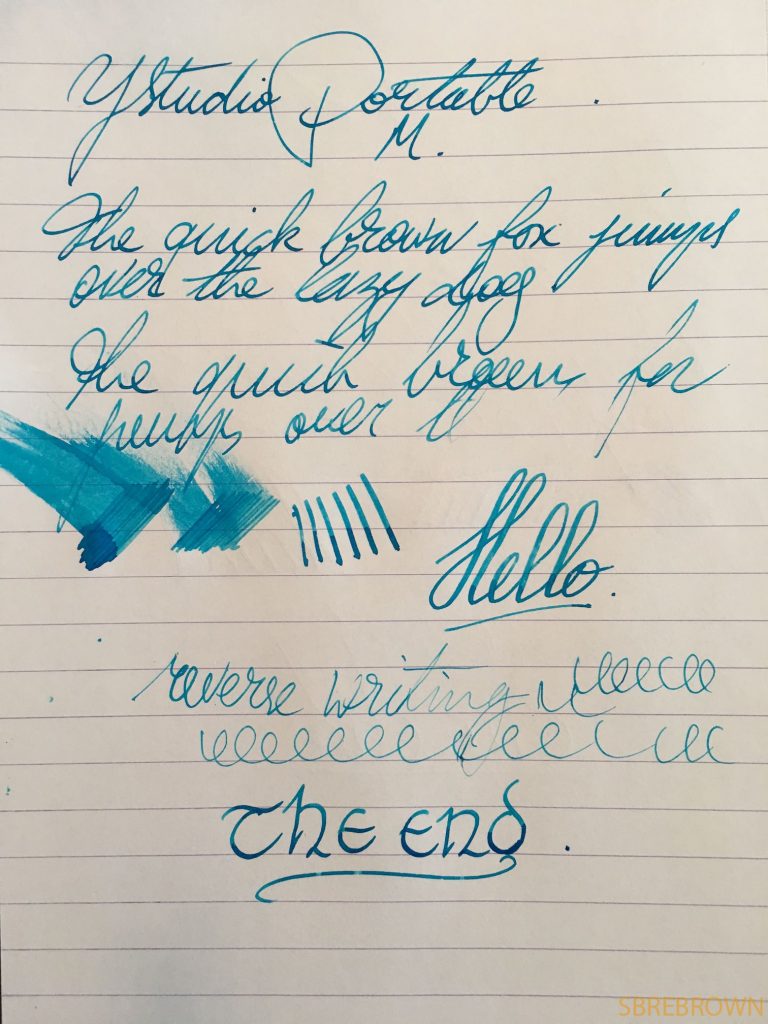 YStudio Portable .
M.
The quick brown fox jumps
over the lazy dog
The quick brown fox
jumps over t
Hello.
reverse writing
The End .
SBREBROWN